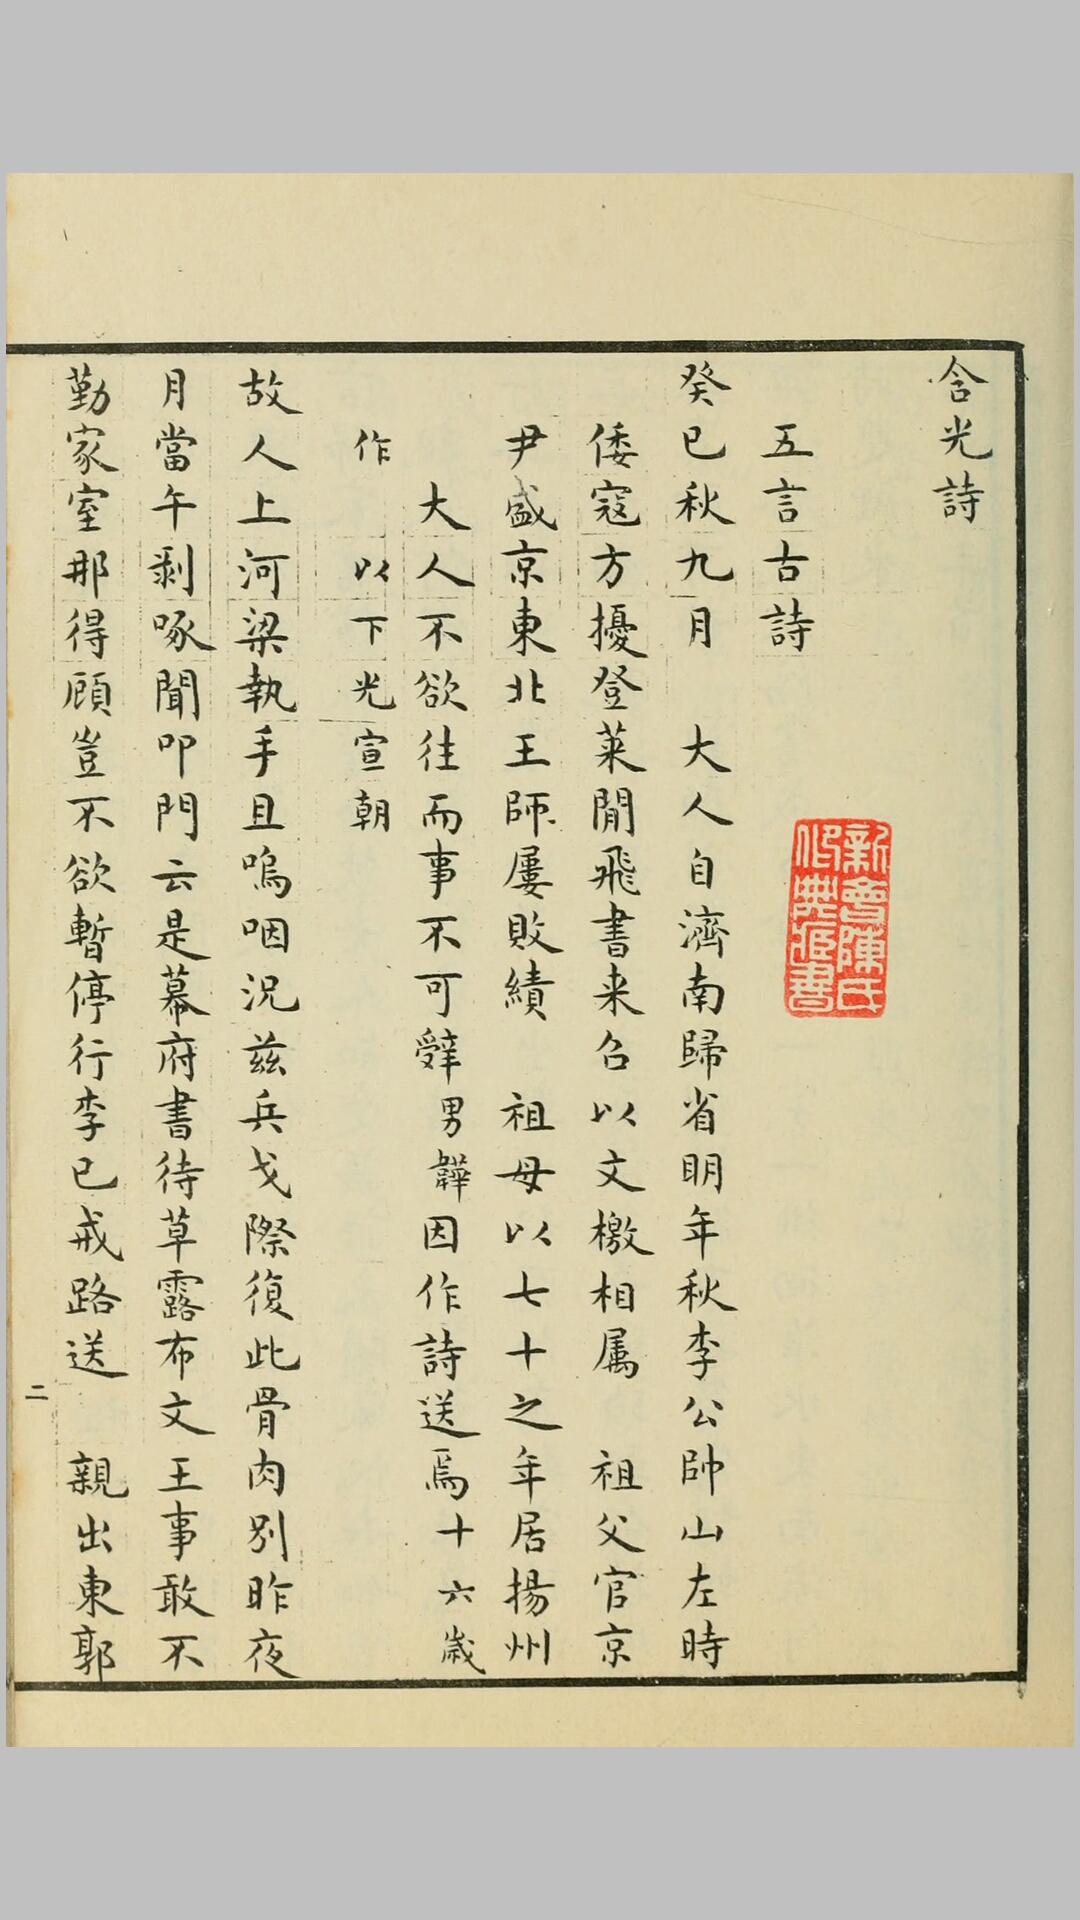 含光詩
五言古詩
新會陳氏
癸巳秋九月　大人自濟南歸省明年秋李公帥山左時
倭寇方擾登萊閒飛書来召以文檄相属　祖父官京
尹盛京東北王師屢敗績　祖母以七十之年居揚州
大人不欲往而事不可辤男韡因作詩送焉十六歲
作　以下光宣朝
故人上河梁執手且嗚咽況茲兵戈際復此骨肉别昨夜
月當午剥啄聞叩門云是幕府書待草露布文王事敢不
勤家室那得顧豈不欲暫停行李已戒路送　親出東郭
二